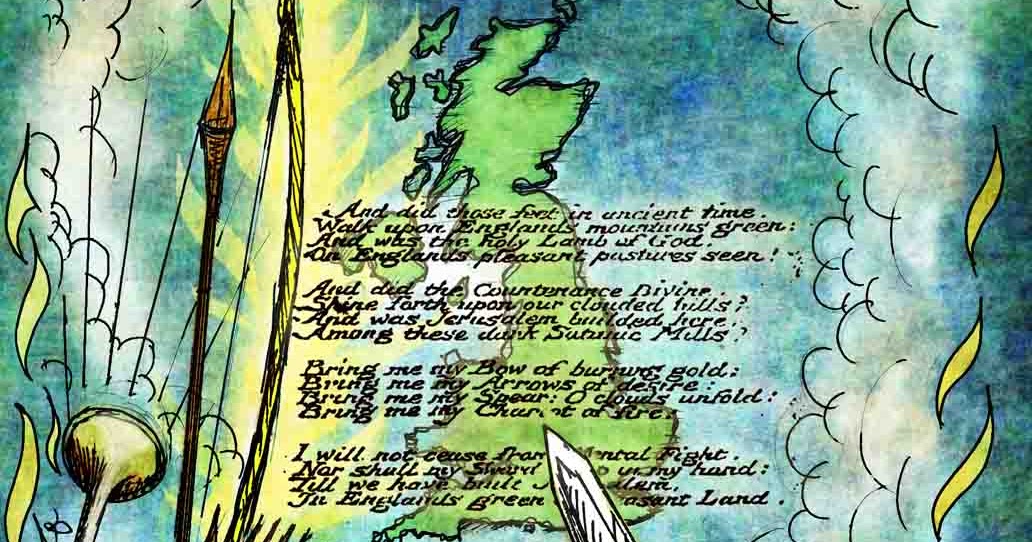 And did those feet in ancient time.
Walk upon Englands mountains green:
And was the holy Lamb of God,
On Englands pleasant pastures seen!
And did the Countenance Divine,
Shine forth upon our clouded hills?
And was Jerusalem builded here,
Among these dark Satanic Mills?
Bring me my Bow of burning gold:
Bring me my Arrows of desire:
Bring me my Spear: O clouds unfold:
Bring me my Chariot of fire.
I will not cease from ental Fight,
Nor shall my Sword in my hand:
Till we have built J alem,
In Englands green asant Land.